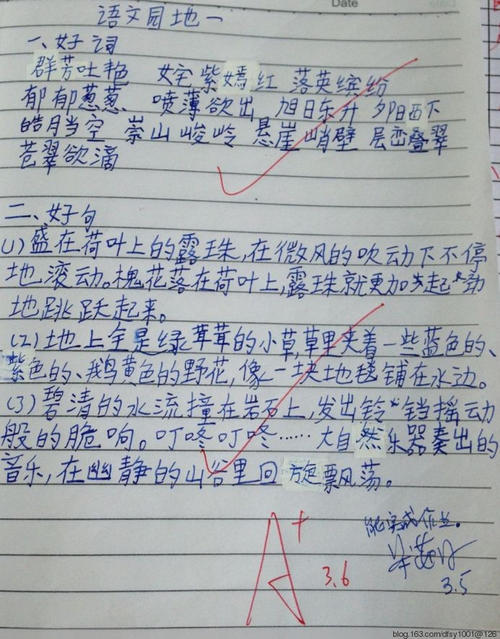 Date
语文园地一
一、好词
群芳吐艳 姹紫嫣红 落英缤纷
郁郁葱葱 喷薄欲出 旭日东升 夕阳西下
皓月当空 崇山峻岭 悬崖峭壁 层峦叠翠
苍翠欲滴
二、好句
(1)盛在荷叶上的露珠,在微风的吹动下不停
地滚动。槐花落在荷叶上,露珠就更加起劲
地跳跃起来。
(2)地上全是绿茸茸的小草,草里夹着一些蓝色的、
紫色的、鹅黄色的野花,像一块地毯铺在水边。
(3)碧清的水流撞在岩石上,发出铃铛摇动
般的脆响。叮咚叮咚……大自然乐器奏出的
音乐,在幽静的山谷里回旋飘荡。
A+
3.6
能完成作业。
3.5
blog.163.com/dfsy1001@126